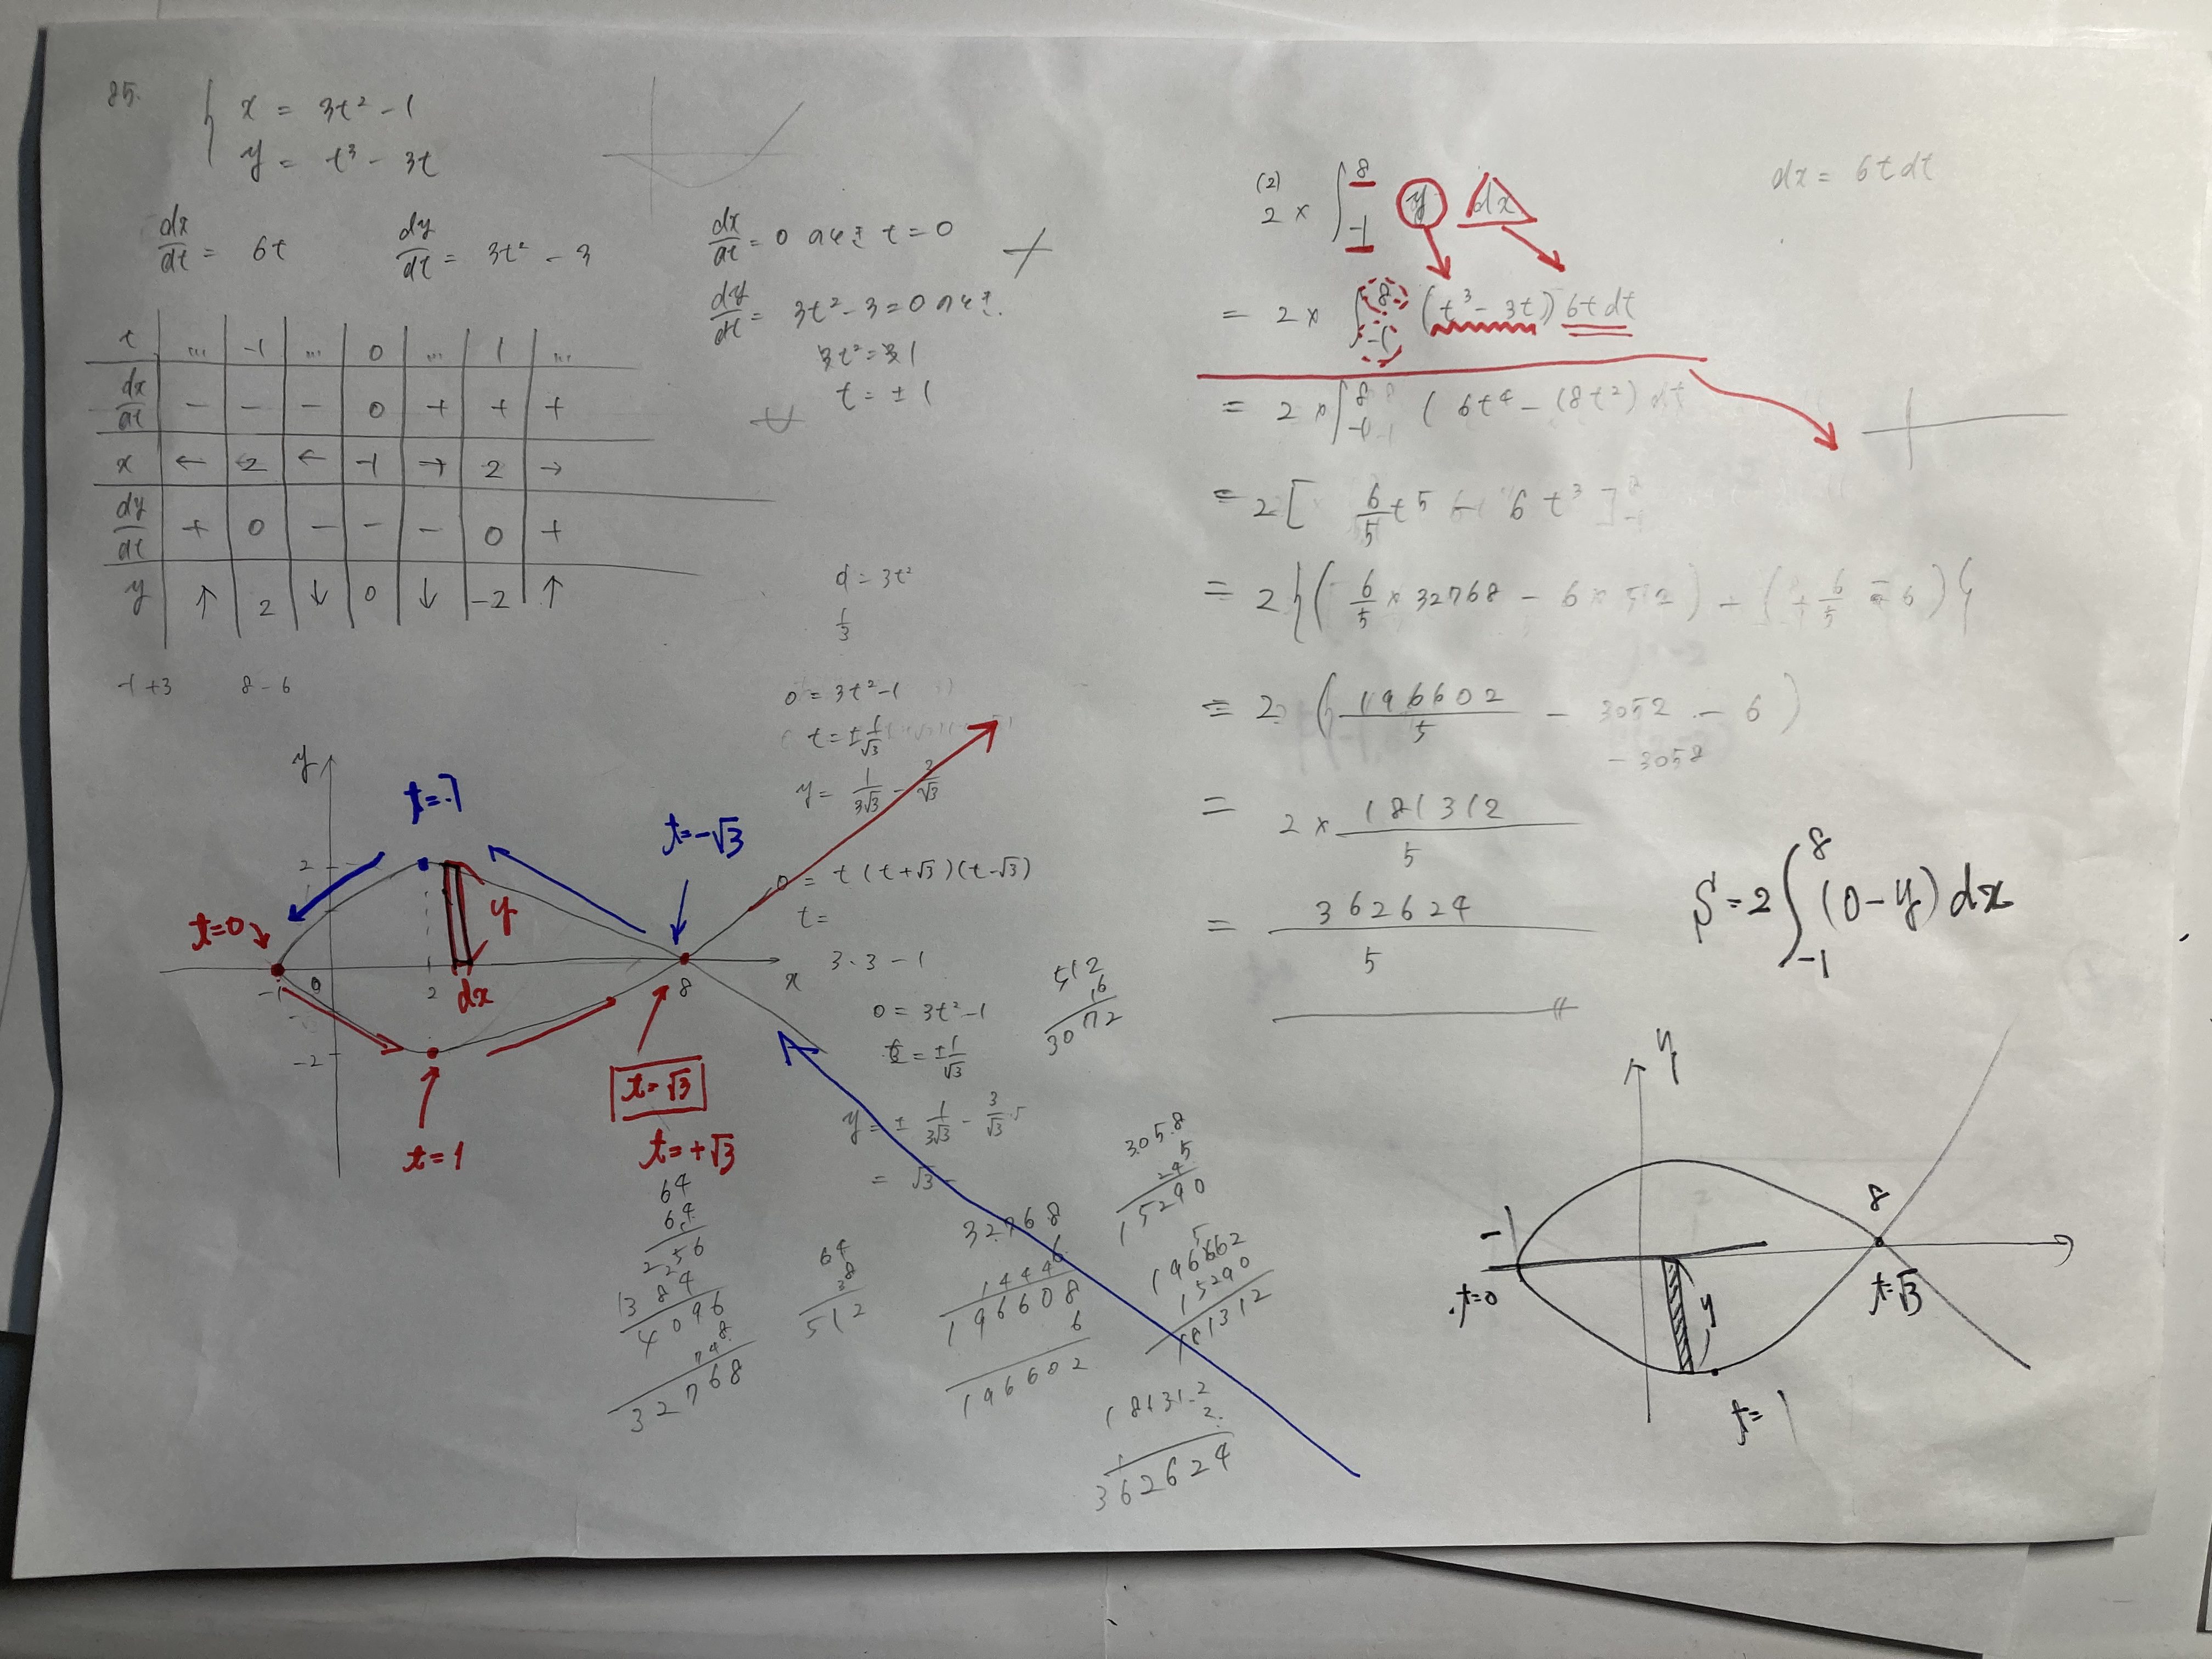 85.
x = 3t² - 1
y = t³ - 3t
dx/dt = 6t
dy/dt = 3t² - 3
dx/dt = 0 のとき t = 0
dy/dt = 3t² - 3 = 0 のとき.
t = ± 1
t ... -1 ... 0 ... 1 ...
dx/dt - - - 0 + + +
x ← 2 ← -1 → 2 →
dy/dt + 0 - - - 0 +
y ↑ 2 ↓ 0 ↓ -2 ↑
-1+3 8-6
d = 3t²
1/3
0 = 3t² - 1
t = ± 1/√3
y = 1/3√3 - 2/√3
0 = t (t+√3)(t-√3)
t =
3·3-1
0 = 3t² - 1
= ± 1/√3
y = ± 1/3√3 - 3/√3
= √3 -
y
t=-1
t=-√3
2
t=0
y
-1
0
2
dx
8
x
-2
t=1
t=√3
t=+√3
64
64
256
384
4096
8
32768
64
8
512
32768
6
196608
6
196602
512
6
3072
3058
5
15290
15290
181312
181312
2
362624
(2)
2 × ∫₋₁⁸ y dx
dx = 6t dt
= 2 × ∫₋₁⁸ (t³ - 3t) 6t dt
= 2 × ∫₋₁⁸ (6t⁴ - 18t²) dt
= 2 [ 6/5 t⁵ - 6t³ ]
= 2 { ( 6/5 × 32768 - 6 × 512 ) - ( + 6/5 - 6 ) }
= 2 ( 196602/5 - 3052 - 6 )
- 3058
= 2 × 181312/5
= 362624/5
S = 2 ∫₋₁⁸ (0-y) dx
y
-1
8
t=0
y
t=√3
t=1